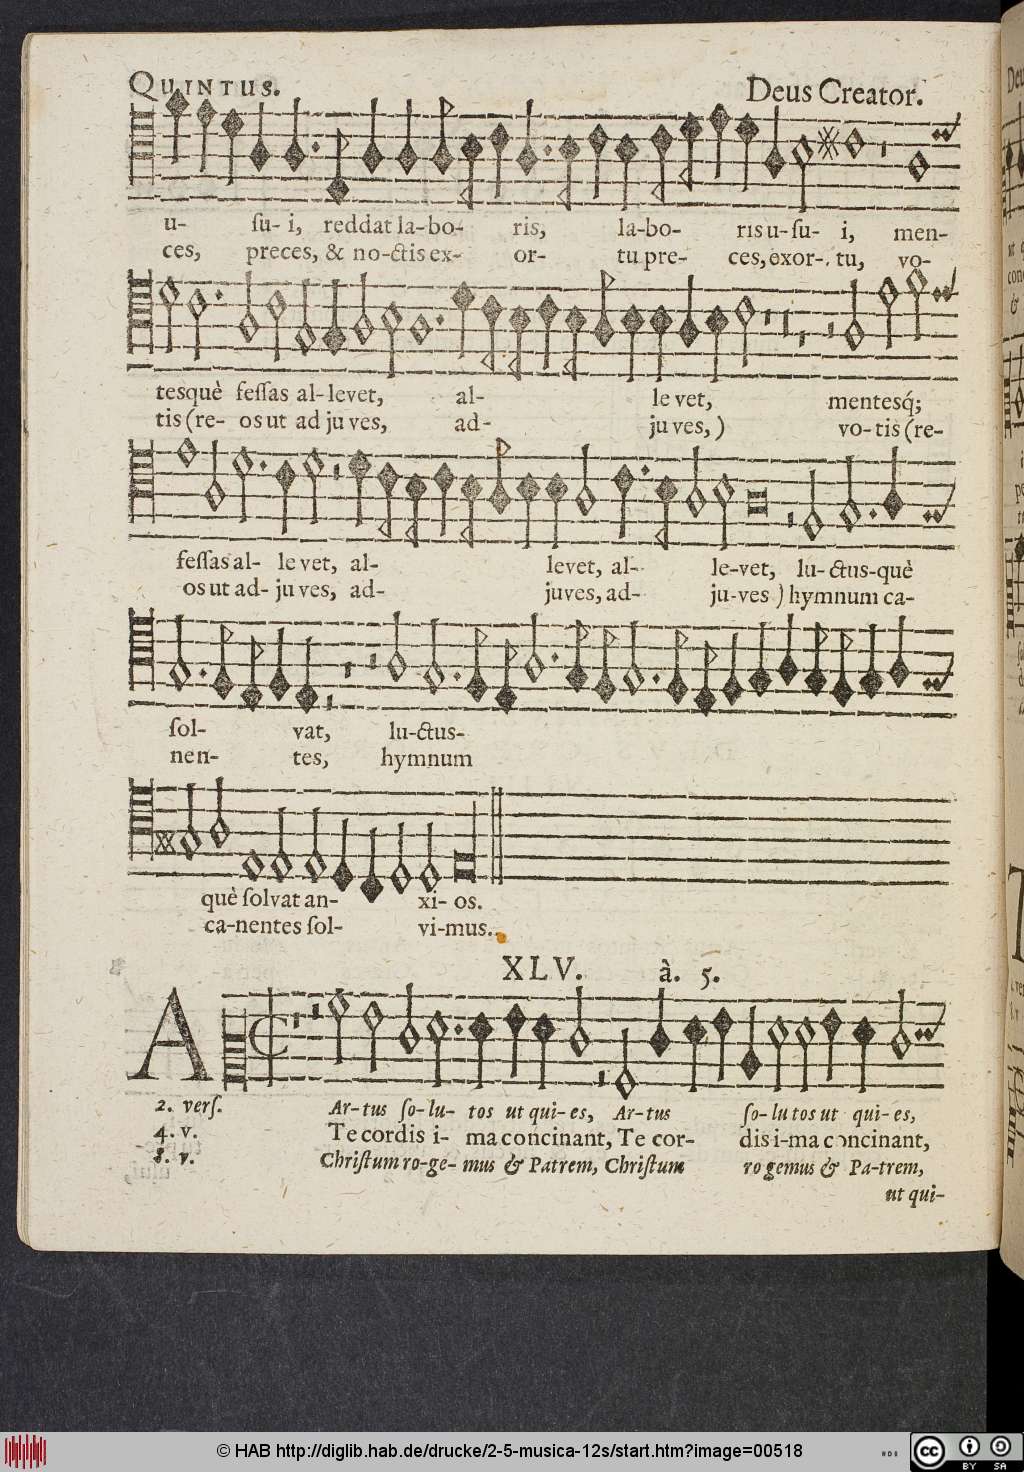 QUINTUS. Deus Creator.
u- ſu- i, reddat la-bo- ris, la-bo- ris u-ſu- i, men-
ces, preces, & no-ctis ex- or- tu pre- ces, exor- tu, vo-
tesquè feſſas al-levet, al- le vet, mentesq́;
tis (re- os ut ad ju ves, ad- ju ves, ) vo-tis (re-
feſſas al- le vet, al- levet, al- le-vet, lu-ctus-què
os ut ad- ju ves, ad- juves, ad- ju-ves ) hymnum ca-
ſol- vat, lu-ctus-
nen- tes, hymnum
què ſolvat an- xi- os.
ca-nentes ſol- vi-mus.
XLV. à. 5.
A
2. verſ. Ar-tus ſo-lu- tos ut qui- es, Ar-tus ſo- lu tos ut qui- es,
4. v. Te cordis i- ma concinant, Te cor- dis i-ma concinant,
8. v. Chriſtum ro-ge- mus & Patrem, Chriſtum ro gemus & Pa-trem,
ut qui-
© HAB http://diglib.hab.de/drucke/2-5-musica-12s/start.htm?image=00518
cc BY SA